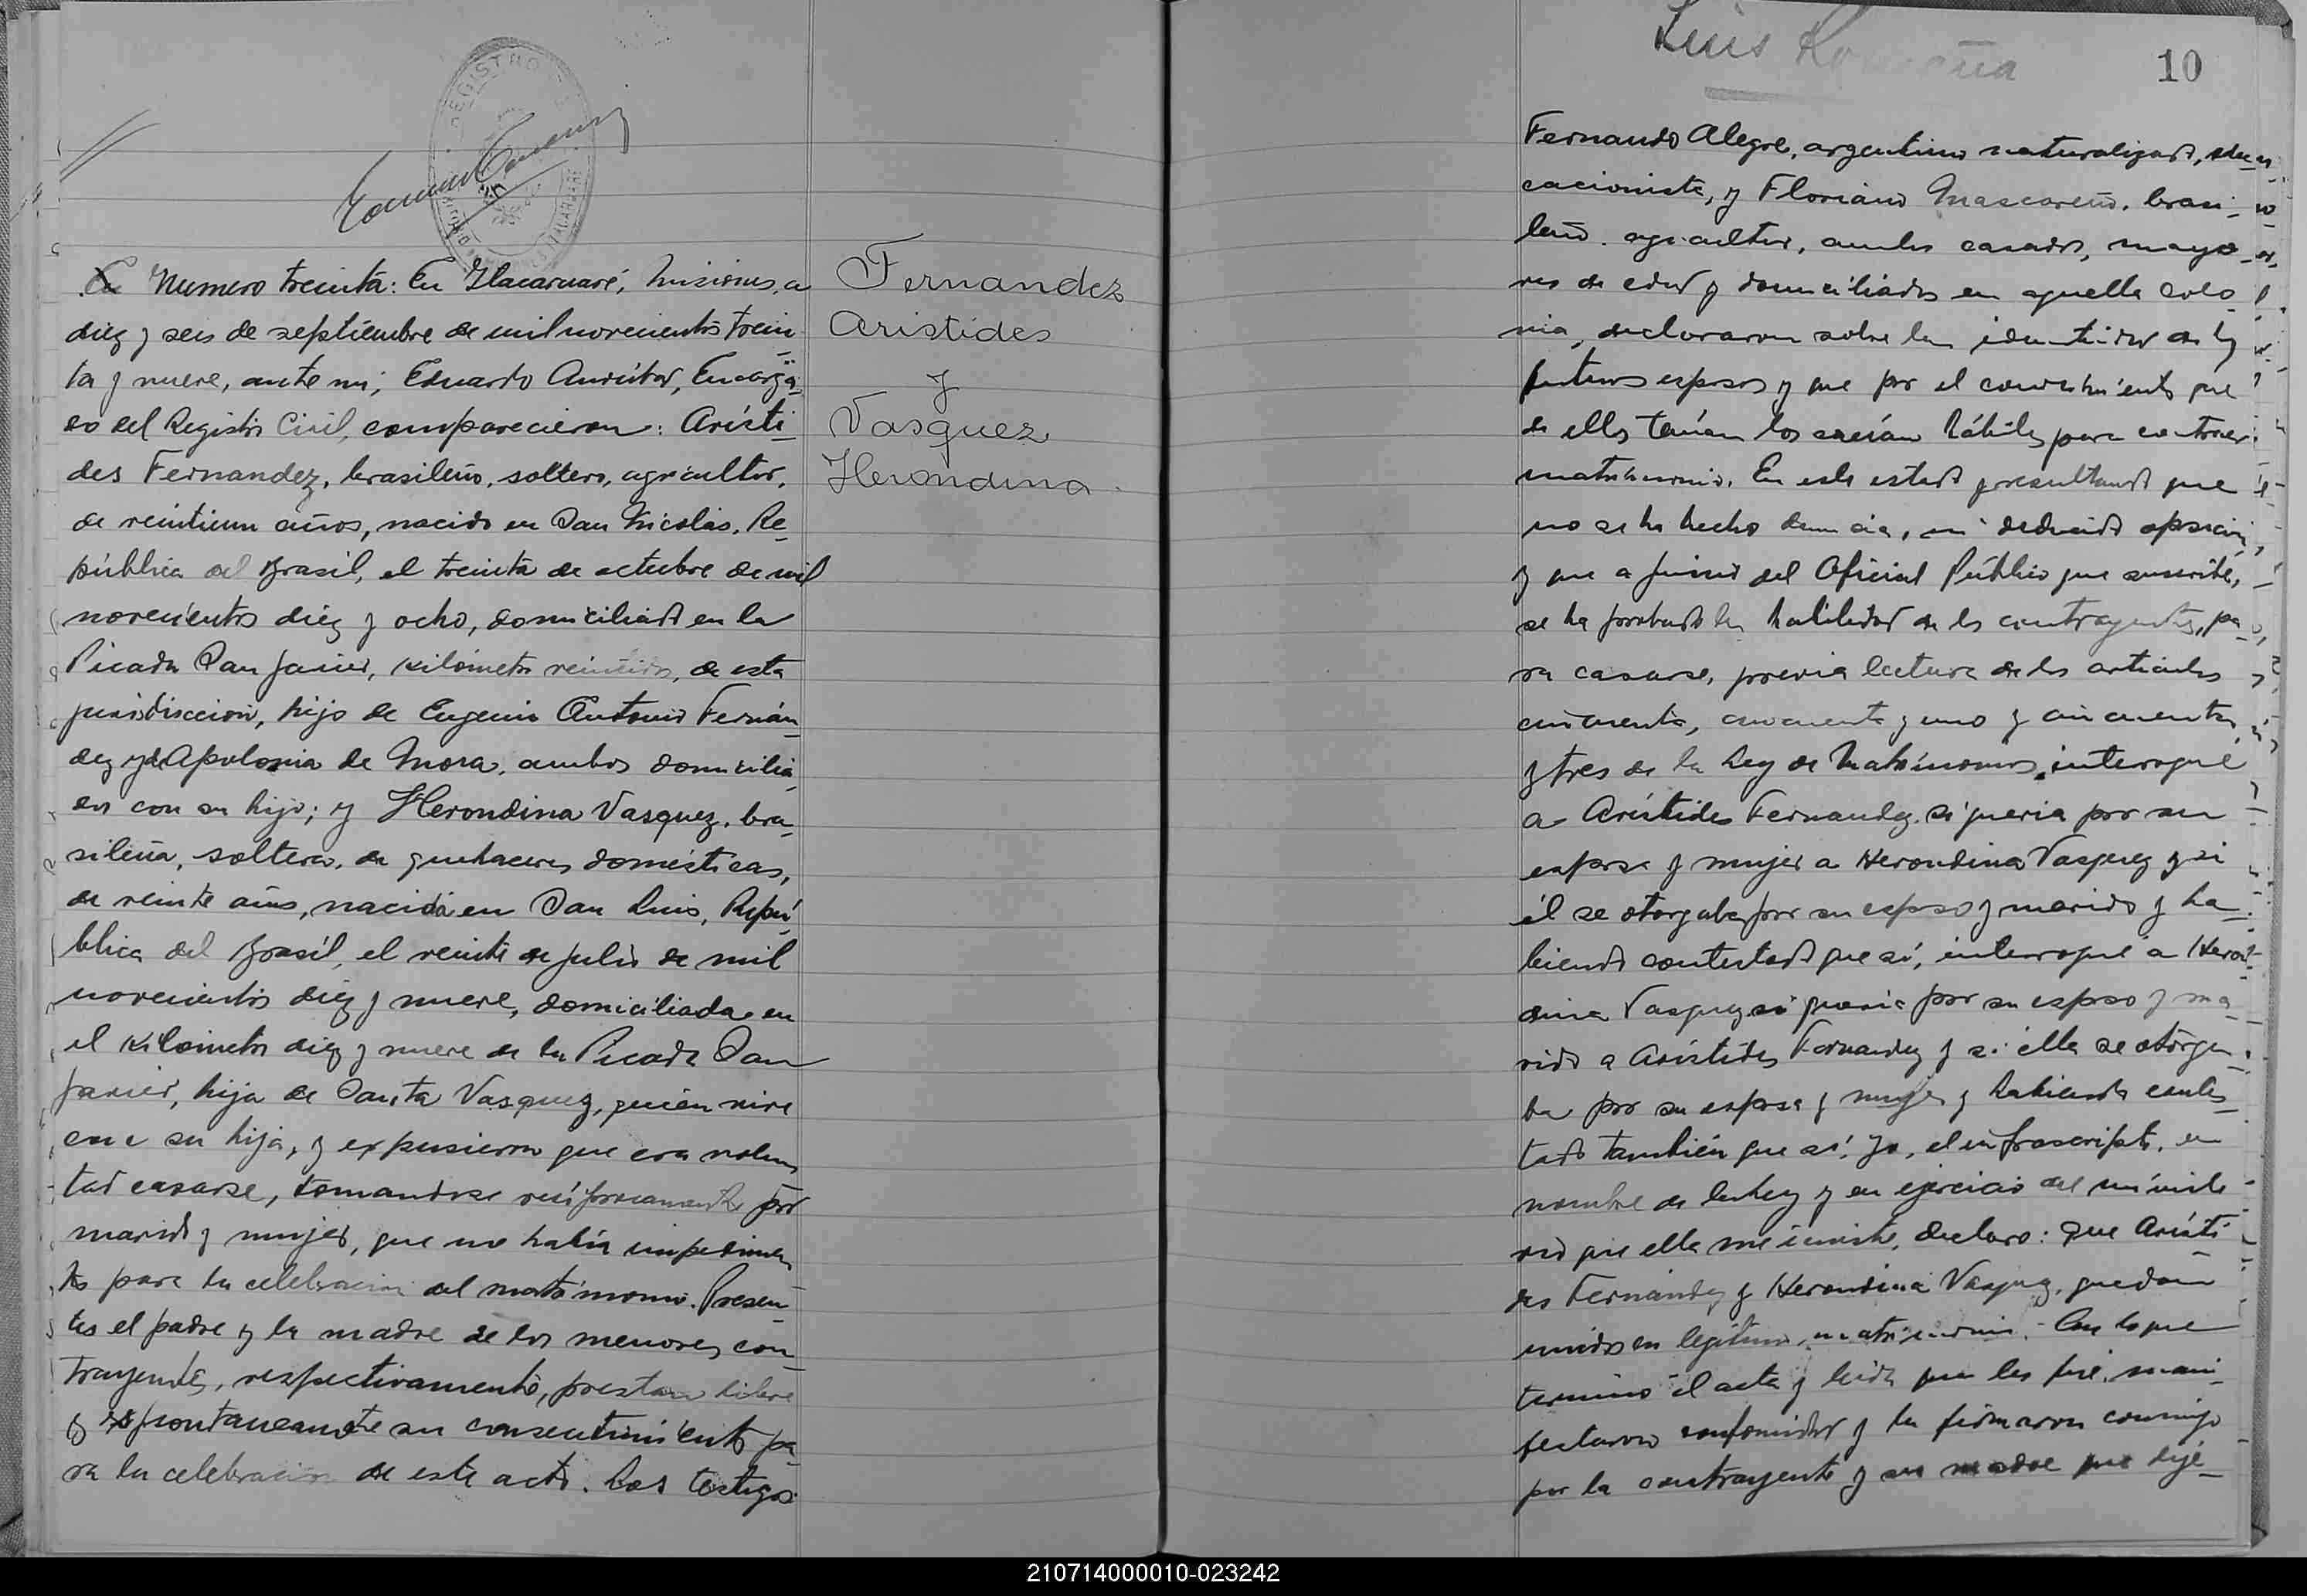 Numero treinta: En Itacaruaré, Misiones, a
diez y seis de septiembre de mil novecientos trein
ta y nueve, ante mi, Eduardo Encarga
do del Registro Civil, comparecieron: Aristi_
des Fernandez, brasileño, soltero, agricultor,
de veintiun años, nacido en San Nicolás, Re_
pública del Brasil, el treinta de octubre de mil
novecientos diez y ocho, domiciliado en la
Picada San Javier, kilómetro veintidos, de esta
jurisdiccion, hijo de Eugenio Antonio Fernán_
dez y de Apolonia de Mora, ambos domicilia
dos con su hijo; y Herondina Vasquez, bra_
sileña, soltera, de quehaceres domésticas,
de veinte años, nacida en San Luis, Repú_
blica del Brasil, el veinte de julio de mil
novecientos diez y nueve, domiciliada en
el kilómetro diez y nueve de la Picada San
Javier, hija de Santa Vasquez, quién vive
con su hija, y expusieron que era volun
tad casarse, tomandose reciprocamente por
marido y mujer, que no había impedimen
to para la celebracion del matrimonio. Presen_
tes el padre y la madre de los menores con_
trayentes, respectivamente, prestan libre
y espontaneamente su consentimiento pa
ra la celebracion de este acto. Los testigos
Fernandez
Aristides
y
Vasquez
Herondina
Luis
10
Fernando Alegre, argentino naturalizado, edu
cacionista, y Floriano Mascareño, brasi_
leño, agricultor, ambos casados, mayo_
res de edad y domiciliados en aquella colo
nia, declararon sobre la identidad de los
futuros esposos y que por el conocimiento que
de ellos tenían los creían hábiles para contraer
matrimonio. En este estado y resultando que
no se ha hecho denuncia, ni deducido oposicion,
y que a juicio del Oficial Público que suscribe,
se ha probado la habilidad de los contrayentes, pa_
ra casarse, previa lectura de los articulos
cincuenta, cincuenta y uno y cincuenta
y tres de la Ley de Matrimonios, interrogué
a Arístides Fernandez si queria por su
esposa y mujer a Herondina Vasquez y si
él se otorgaba por su esposo y marido y ha_
biendo contestado que sí, interrogué a Heron_
dina Vasquez si queria por su esposo y ma_
rido a Arístides Fernandez y si ella se otorga_
ba por su esposa y mujer y habiendo contes_
tado también que sí, Yo, el infrascripto, en
nombre de la Ley y en ejercicio del ministe
rio que ella me declaro: Que Arísti
des Fernández y Herondina Vasquez, quedan
unidos en legítimo matrimonio. Con lo que
termino el acta y leída que les fué, mani_
festaron conformidad y la firmaron conmigo
por la contrayente y su madre que dije_
210714000010-023242